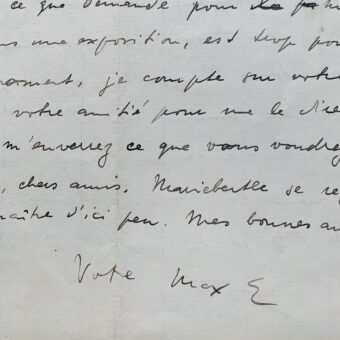 ce que demande pour
une exposition, est trop
je compte sur votre
votre amitié pour me le dire
m'enverrez ce que vous
, chers amis. Marieberthe se
d'ici peu. Mes bonnes
Vote Max E